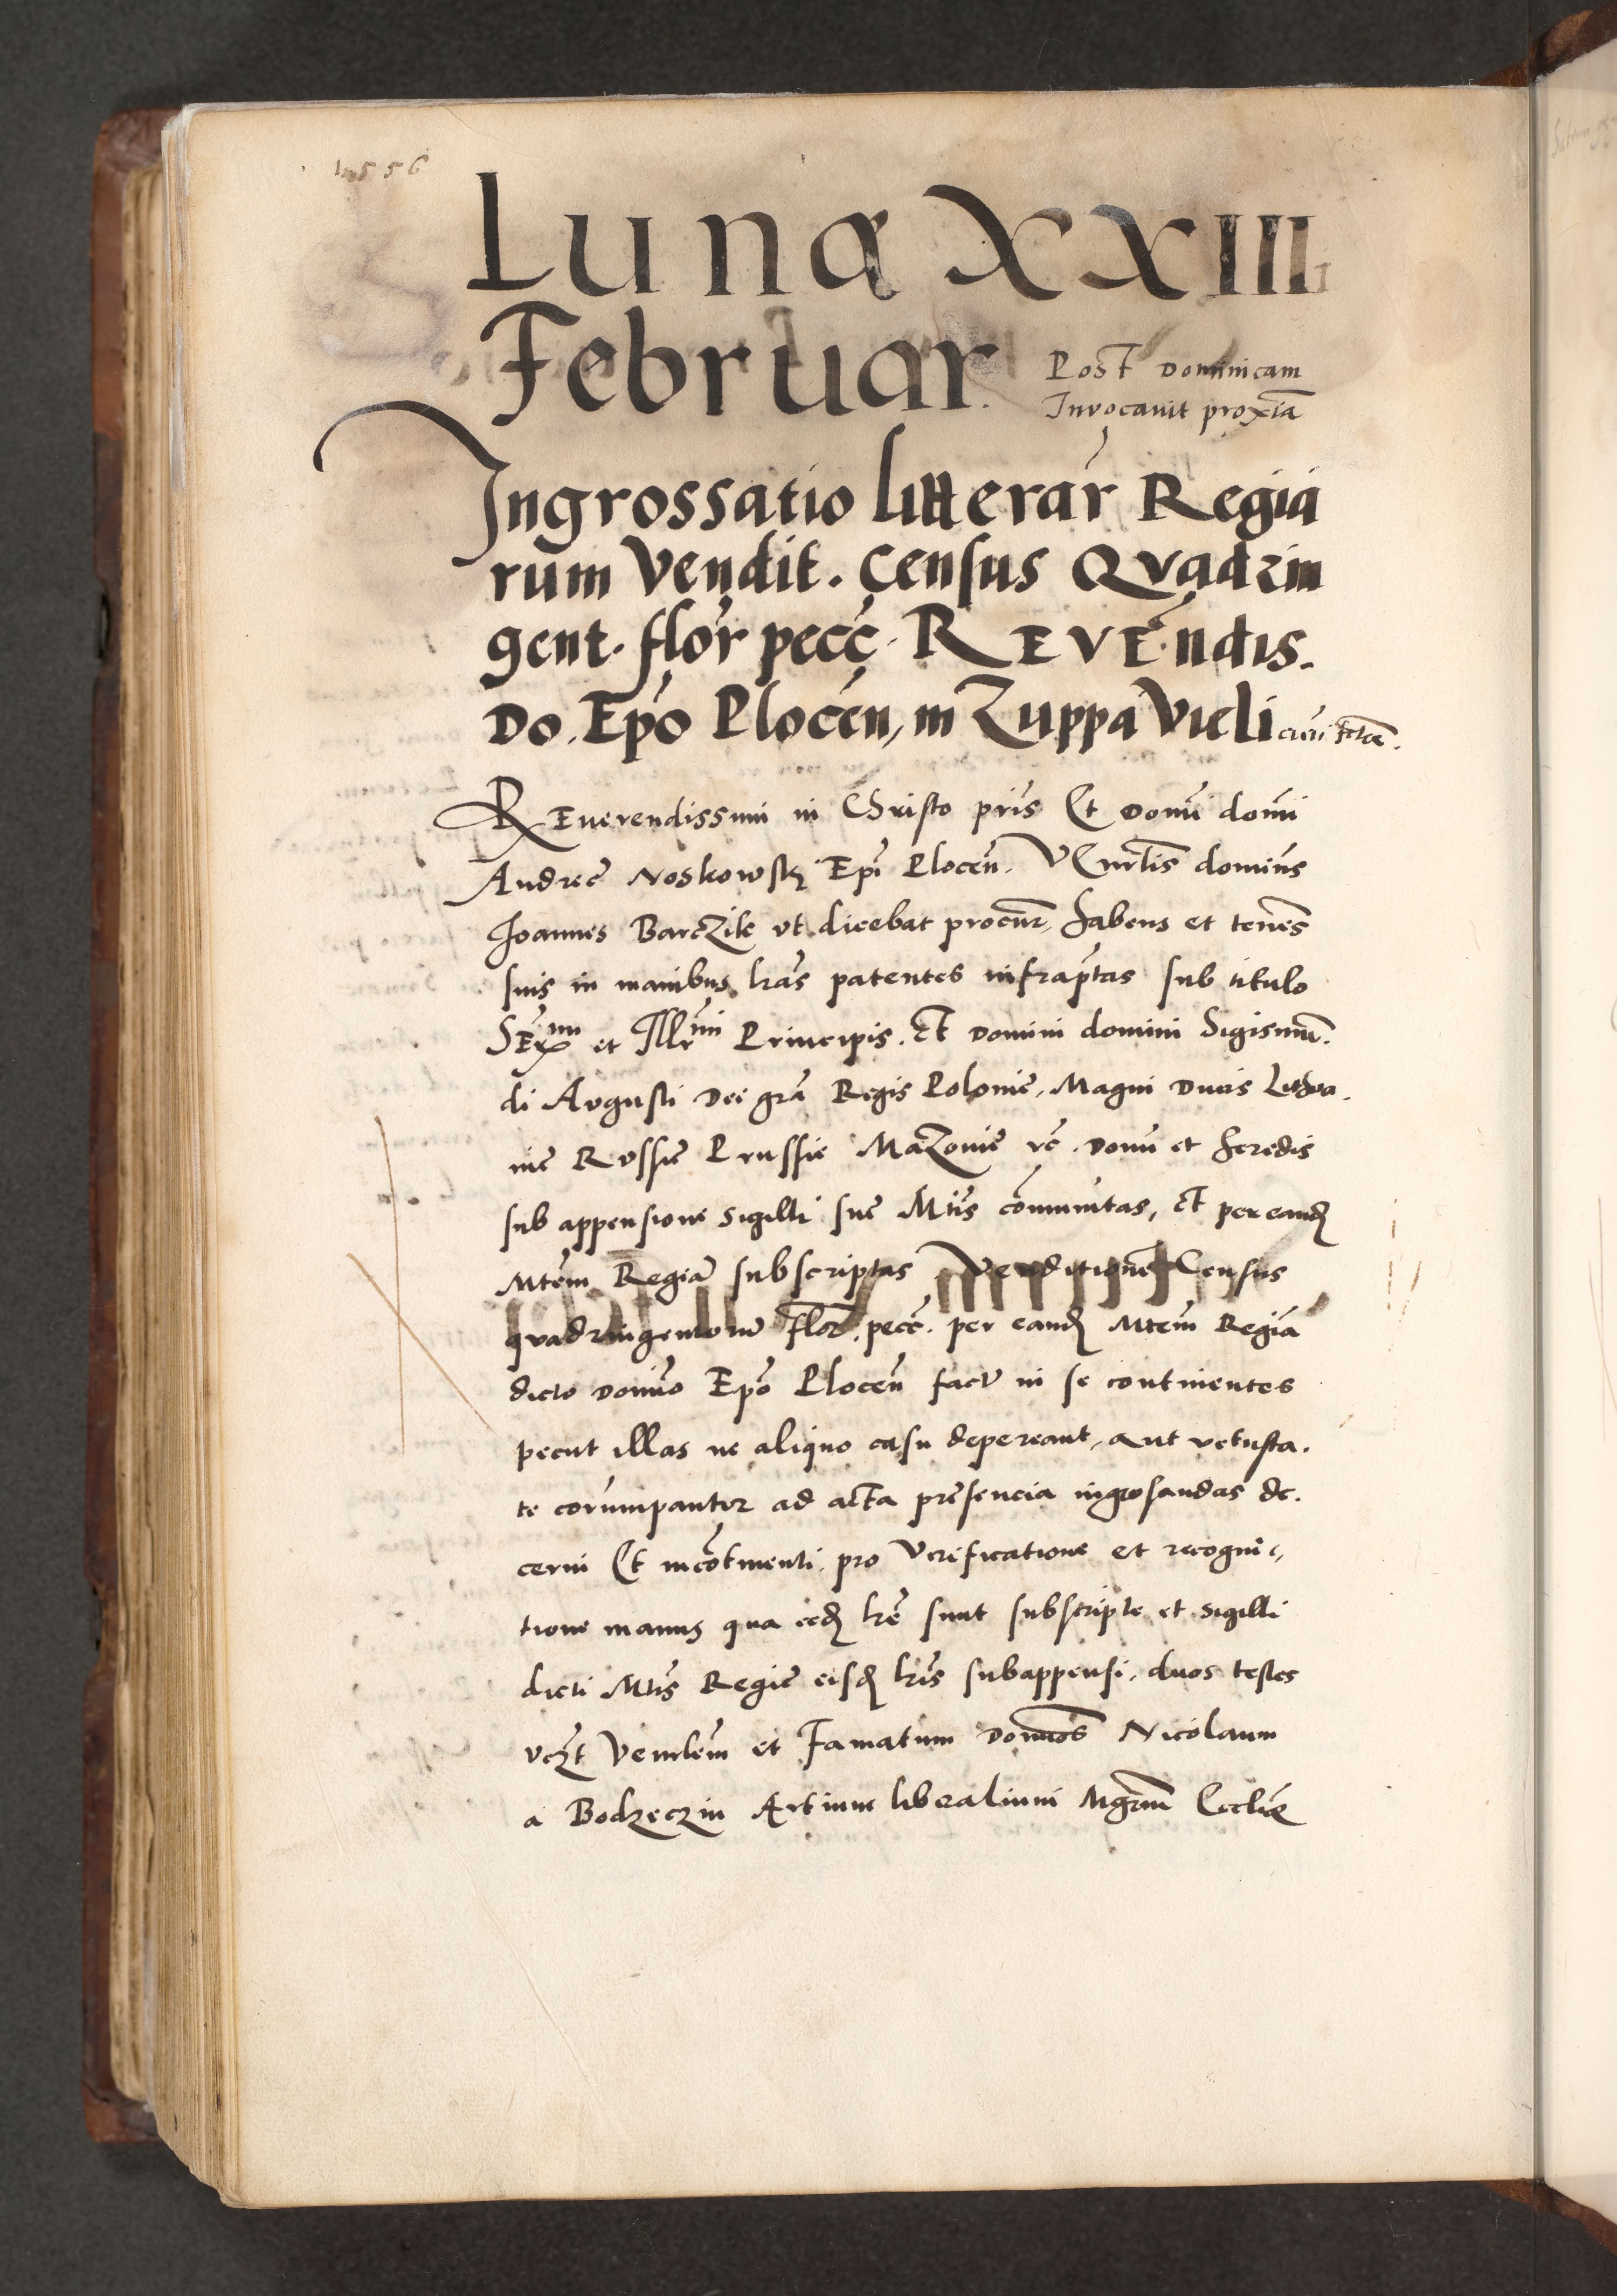 1556
Lunę XXIIII
Februar.
Post Dominicam
Invocavit proxiā
Ingrossatio litterar̄ Regia
rum Vendit. Census Qvadrin
gent. flor̄ pecc̄. REVĒndis.
Do. Ep̄o Plocēn, in Zuppa Vieli
REverendissimi in Christo pr̄is Et Domī domī
Andreę Noskowskÿ Ep̄i Plocēn. domin̄s
Joannes BarcZik ut dicebat procūr, habens et tenēs
suis in manibus lr̄as patentes infrap̄tas sub titulo
et Principis. Et Domini domini Sigismūn.
di Avgusti Dei grā Regis Polonię, Magni Ducis Lithva.
nię Rvssię Prussię MaZovię rc̄. Domī et heredis
sub appensione sigilli suę Mt̄is com̄unitas, Et per eand
Mtēm Regiā subscriptas Venditionē Census
qvadringentorum Flor. pecc̄. per eand Mtēm Regiā
dicto Domīo Ep̄o Plocēn factā in se continentes
peciit illas ne aliquo casu depereant, aut vetusta.
te corrumpantvr ad acta presencia ingrosandas de.
cerni Et incōtinenti pro Verificatione et recogni,
tione manus qua eęd lr̄ę sunt subscriptę et sigilli
dicti Mt̄is Regię eisd lr̄is subappensi, duos testes
vcz̄t Venrlēm et Famatum Domīos Nicolaum
a Bodzeczin Artium liberalium Mgr̄m Eccl̄ię